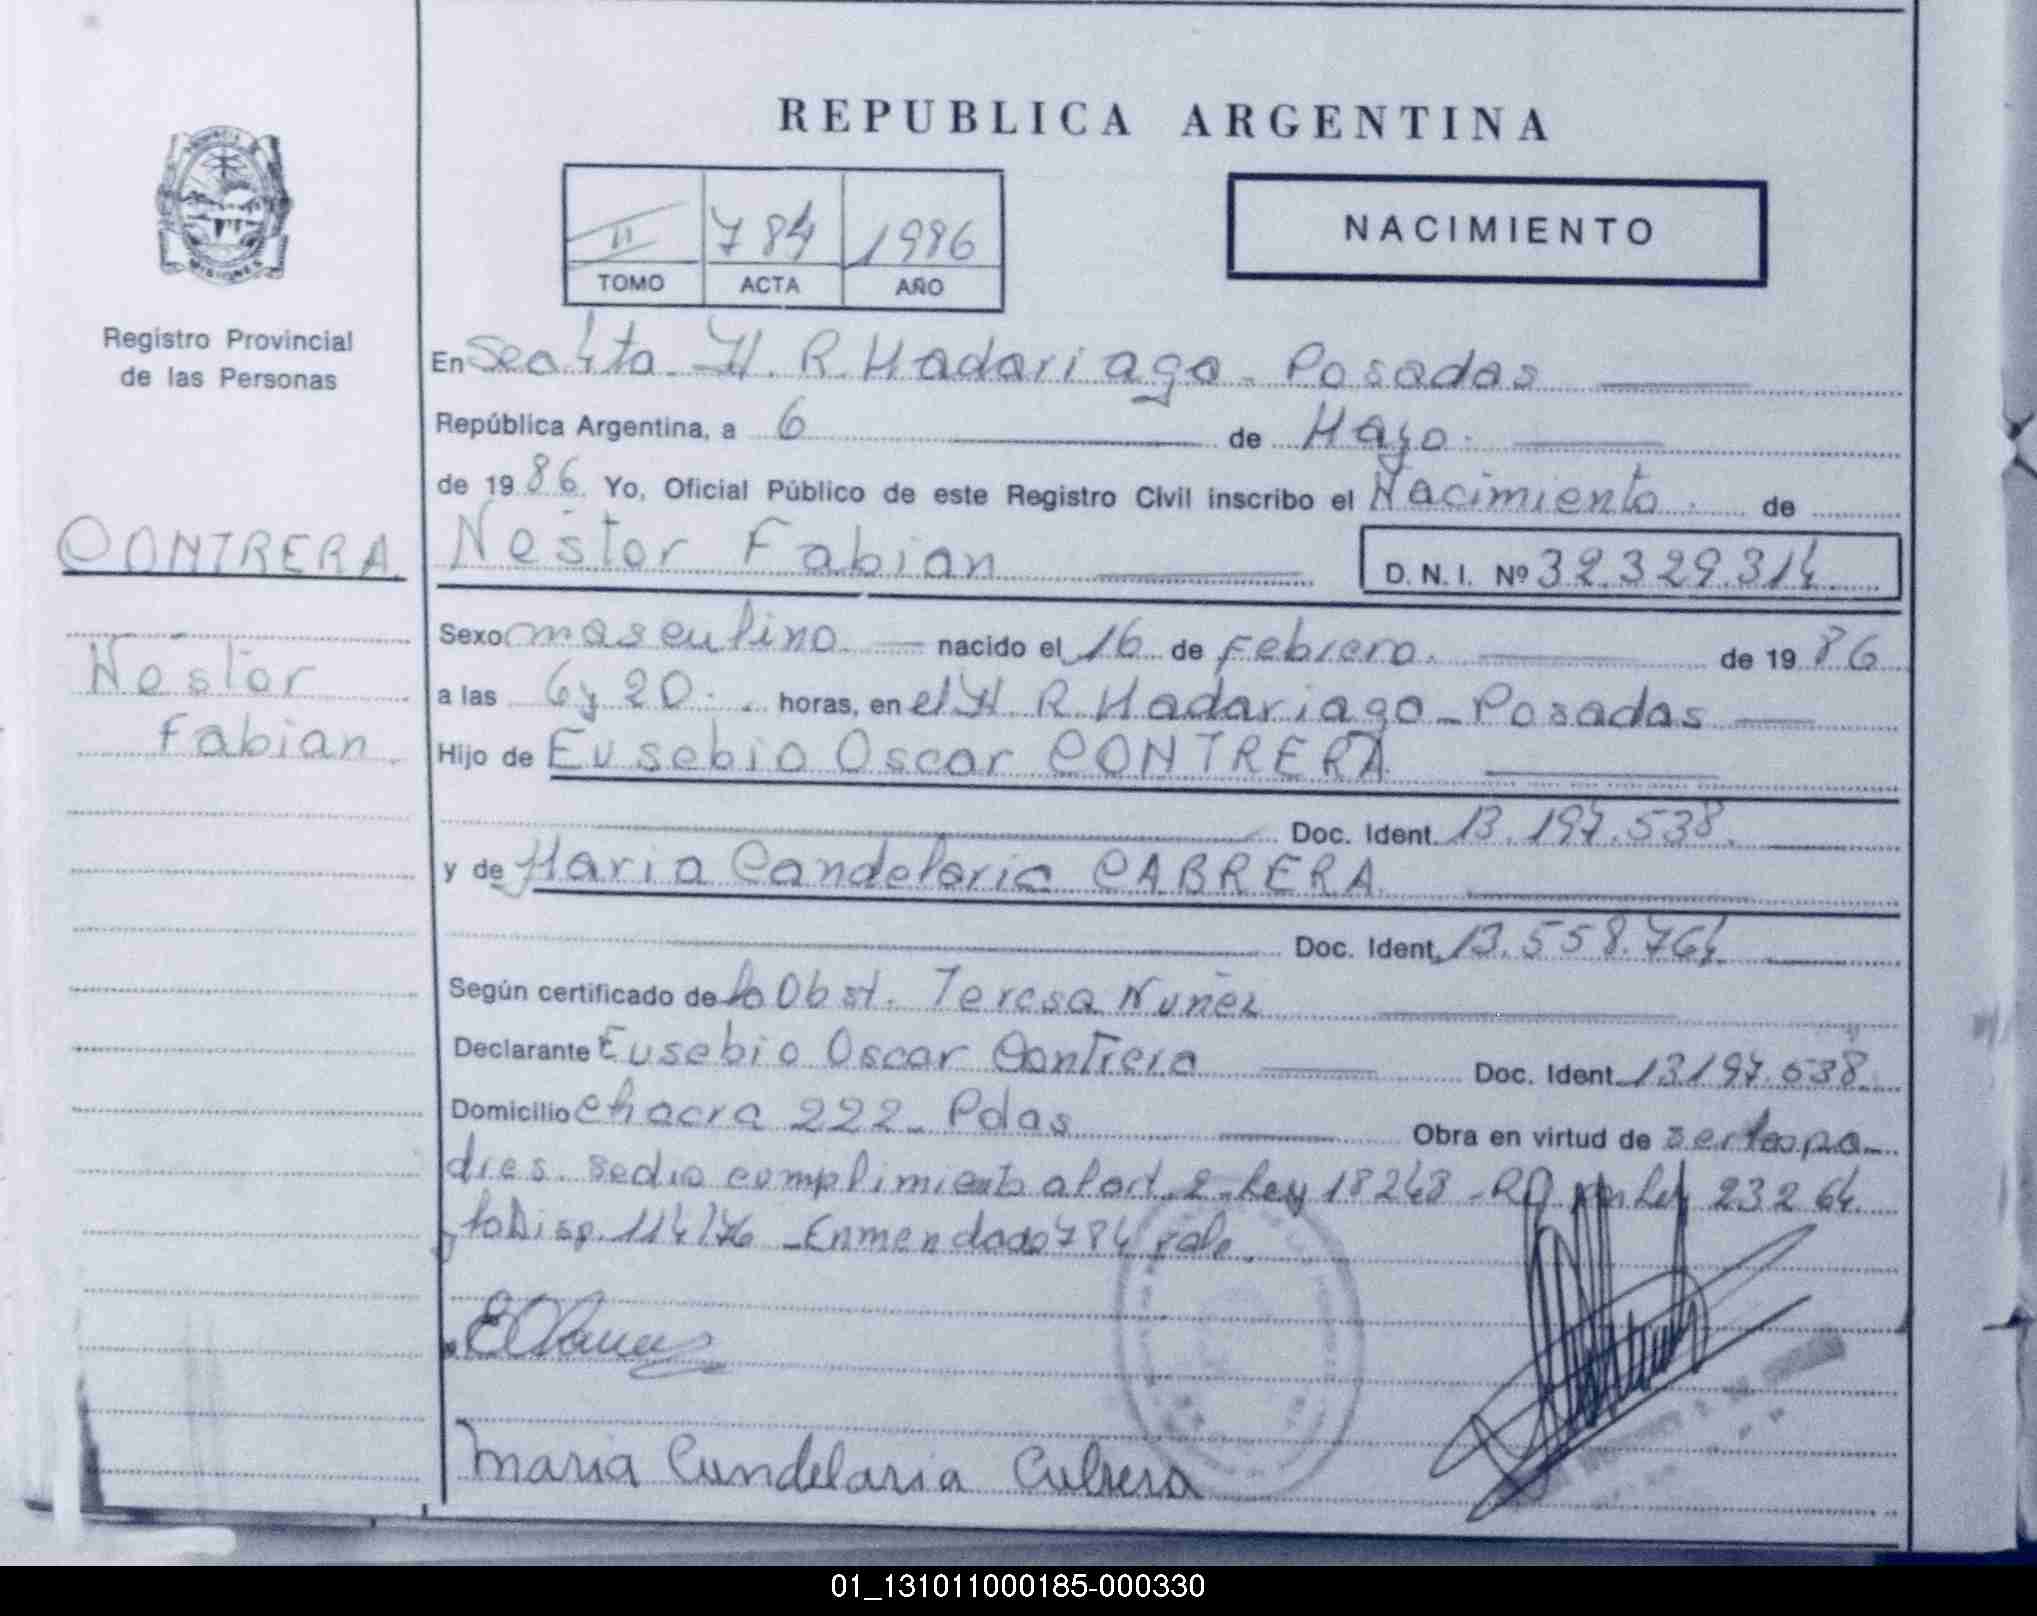 REPUBLICA ARGENTINA
NACIMIENTO
II 784 1986
TOMO ACTA AÑO
MISIONES
Registro Provincial
de las Personas
En Secc 4ta H. R. Madariaga Posadas
República Argentina, a 6 de Mayo
de 1986 Yo, Oficial Público de este Registro Civil inscribo el Nacimiento de
CONTRERA
Nestor Fabian D. N. I. Nº 32.329.314
Nestor
Fabian
Sexo masculino nacido el 16 de Febrero de 1986
a las 6 y 20 horas, en el H. R. Madariaga - Posadas
Hijo de Eusebio Oscar CONTRERA
Doc. Ident. 13.197.538
y de Maria Candelaria CABRERA
Doc. Ident. 13.558.764
Según certificado de la Obst. Teresa Nuñez
Declarante Eusebio Oscar Contrera Doc. Ident. 13197.538
Domicilio Chacra 222 - Pdas Obra en virtud de ser los pa-
dres. Se dio cumplimiento al art. 2 - Ley 18248 - por Ley 23264
y la Disp. 114/76 - Enmendado 784 vale.
Maria Candelaria Cabrera
01_131011000185-000330